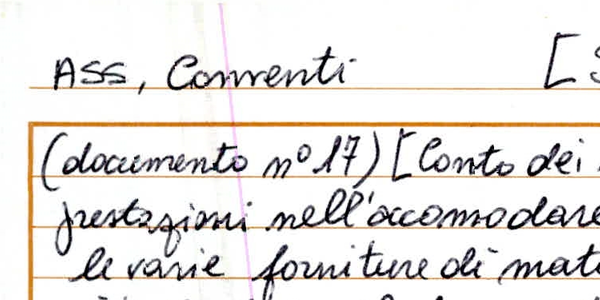 ASS, Conventi [
(documento nº 17) [Conto dei
prestazioni nell'accomodare
le varie forniture di mat